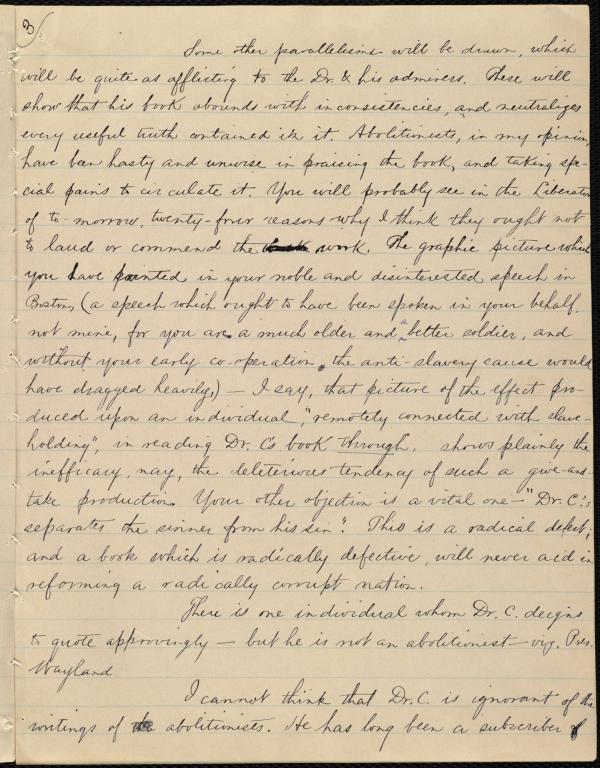 3
Some other parallelisms will be drawn, which
will be quite as afflicting to the Dr. & his admirers. These will
show that his book abounds with inconsistencies, and neutralizes
every useful truth contained in it. Abolitionists, in my opinion,
have been hasty and unwise in praising the book, and taking spe-
cial pains to circulate it. You will probably see in the Liberator
of to-morrow, twenty-four reasons why I think they ought not
to laud or commend the work. The graphic picture which
you have painted in your noble and disinterested speech in
Boston, (a speech which ought to have been spoken in your behalf,
not mine, for you are a much older and a better soldier, and
without your early co-operation, the anti-slavery cause would
have dragged heavily,) — I say, that picture of the effect pro-
duced upon an individual, "remotely connected with slave-
holding", in reading Dr. C's book through, shows plainly the
inefficacy, nay, the deleterious tendency of such a give-and-
take production. Your other objection is a vital one — "Dr. C.
separates the sinner from his sin". This is a radical defect;
and a book which is radically defective, will never aid in
reforming a radically corrupt nation.
There is one individual whom Dr. C. deigns
to quote approvingly — but he is not an abolitionist — viz. Pres.
Wayland.
I cannot think that Dr. C. is ignorant of the
writings of abolitionists. He has long been a subscriber of